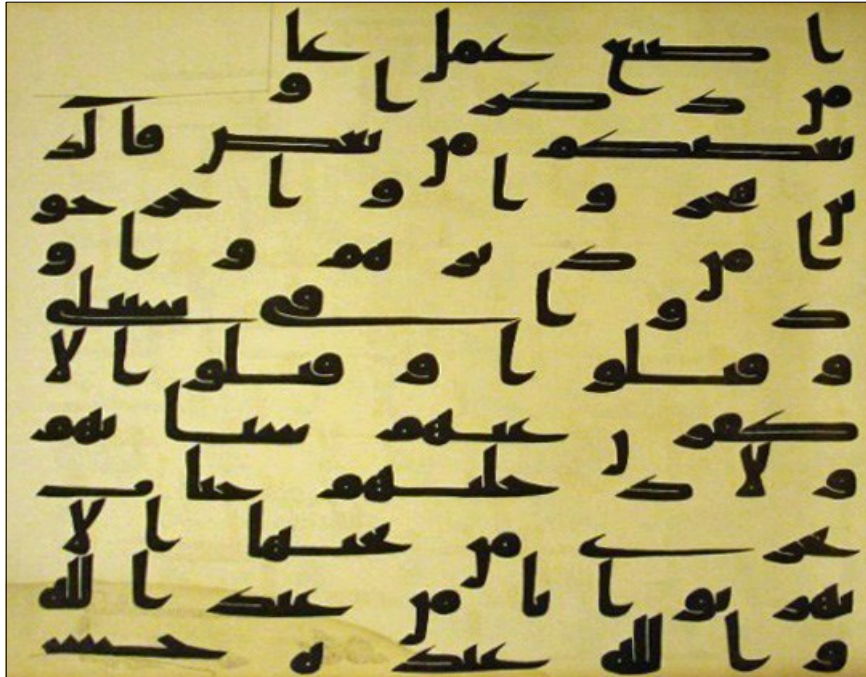 ا ضيع عمل عا
من ذكر او
بعضكم من بعض فالذ
ين هجروا واخرجو
ا من ديرهم واو
ذوا في سبيلي
وقتلوا وقتلوا لا
كفرن عنهم سياتهم
ولادخلنهم جنات
تجري من تحتها الا
نهر ثوابا من عند الله
والله عنده حسن